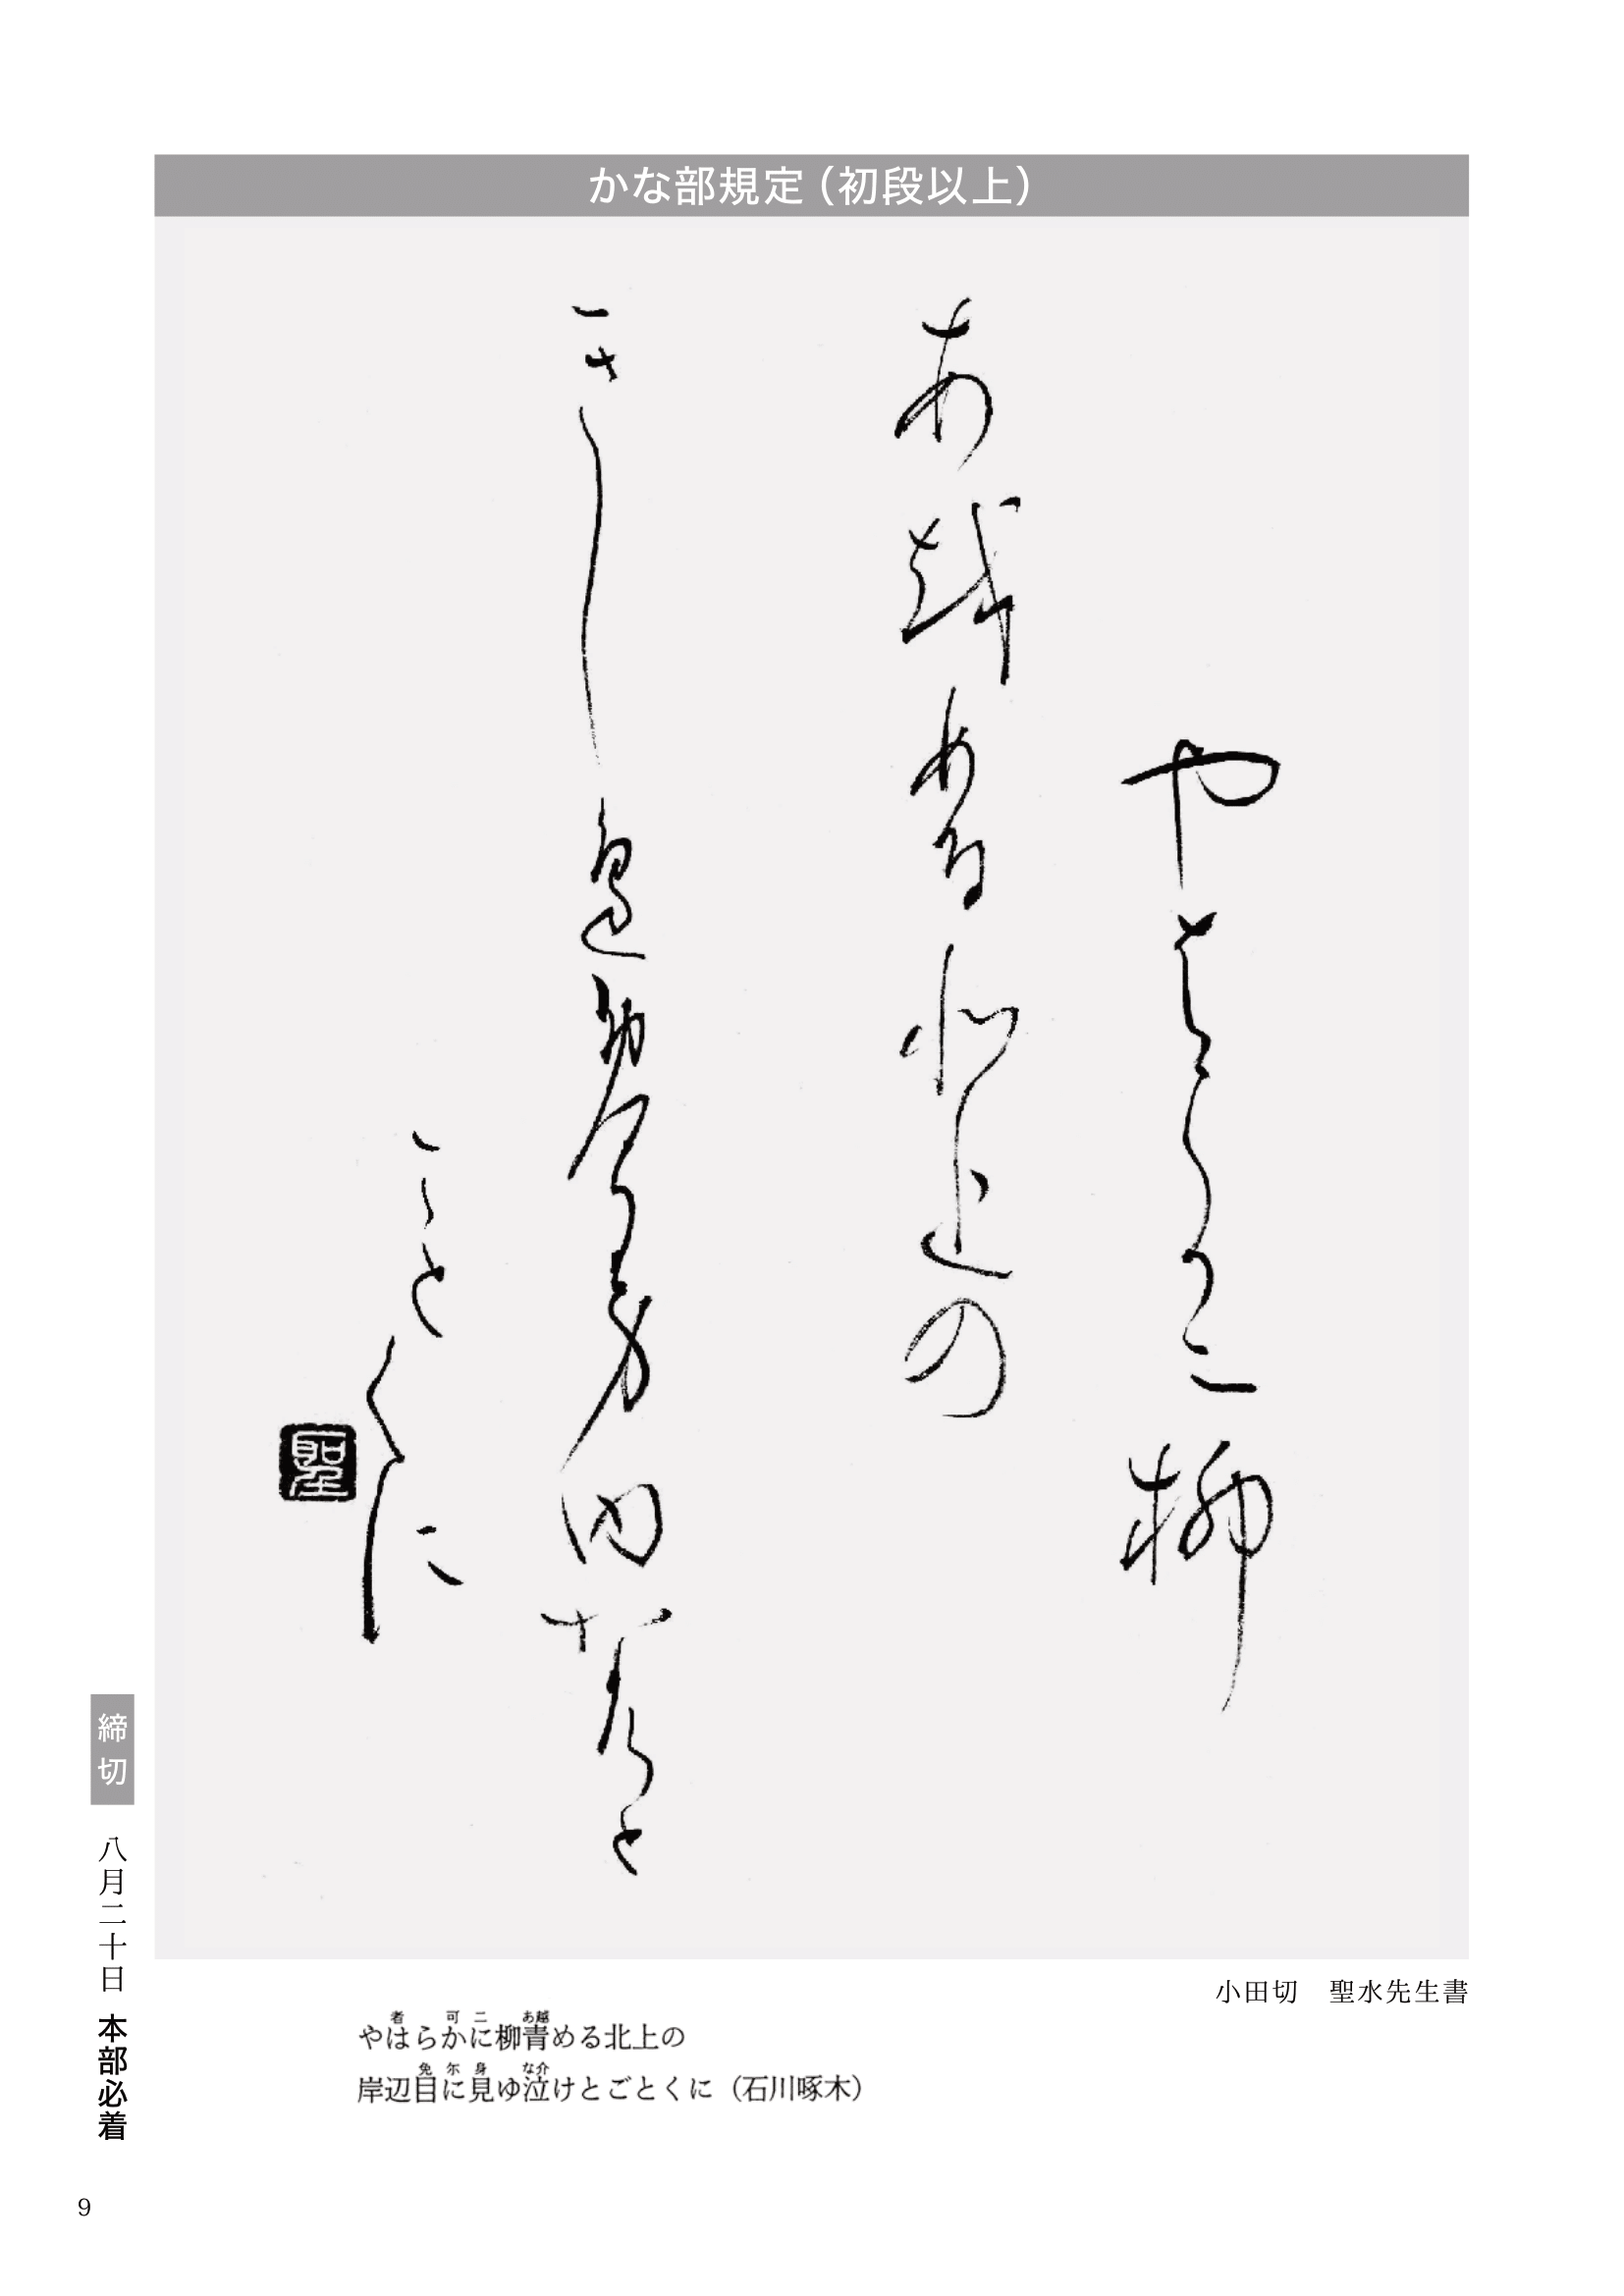 かな部規定（初段以上）
や者ら可二柳
あ越める北上の
きし邊免尓身ゆな介と
ことくに
聖
小田切　聖水先生書
者 可 二 あ越
やはらかに柳青める北上の
免 尓 身 な介
岸辺目に見ゆ泣けとごとくに（石川啄木）
締切
八月二十日 本部必着
9